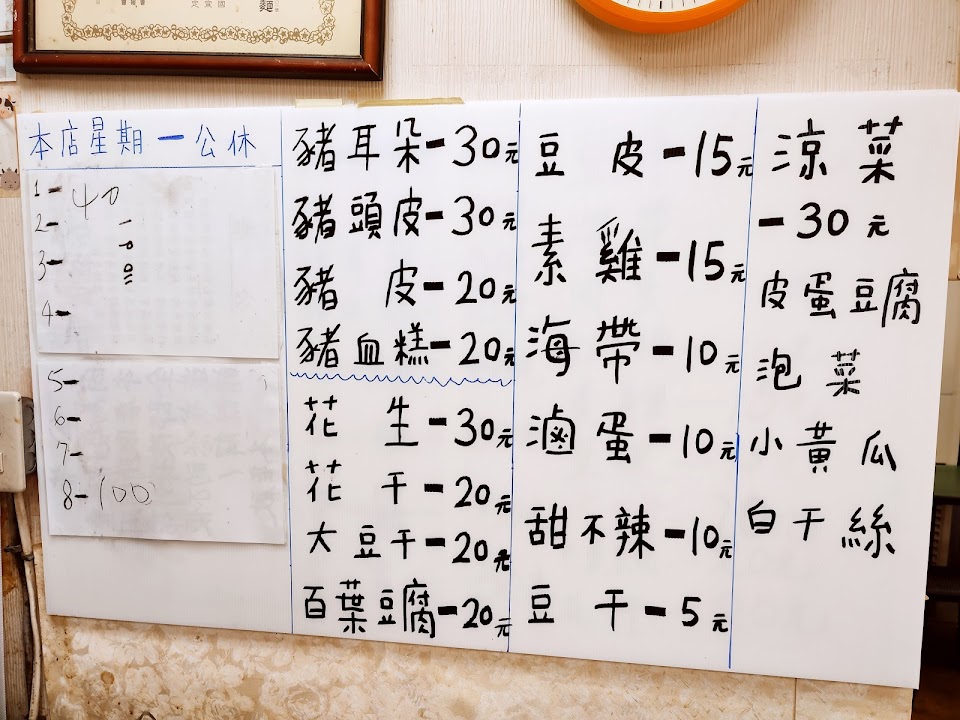 本店星期一公休
1-40
2-
3-
4-
5-
6-
7-
8-100
豬耳朵-30元
豬頭皮-30元
豬皮-20元
豬血糕-20元
花生-30元
花干-20元
大豆干-20元
百葉豆腐-20元
豆皮-15元
素雞-15元
海帶-10元
滷蛋-10元
甜不辣-10元
豆干-5元
涼菜
-30元
皮蛋豆腐
泡菜
小黃瓜
白干絲